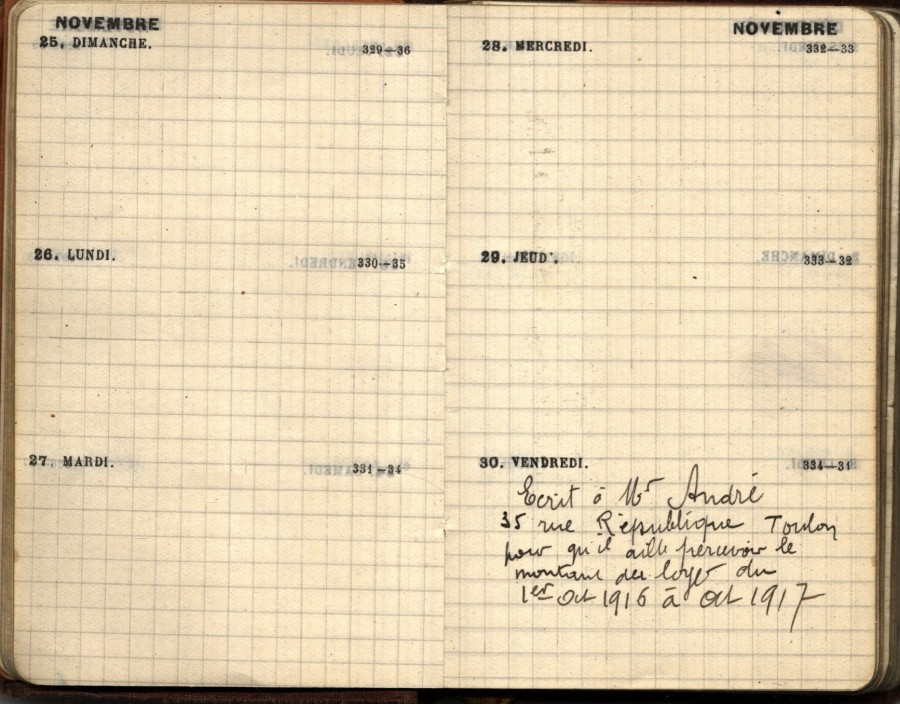 NOVEMBRE
25. DIMANCHE.
329—36
26. LUNDI.
330—35
27. MARDI.
331—34
NOVEMBRE
28. MERCREDI.
332—33
29. JEUDI.
333—32
30. VENDREDI.
334—31
Ecrit à Mr André
35 rue République Toulon
pour qu'il aille percevoir le
montant des loyers du
1er Oct 1916 à oct 1917